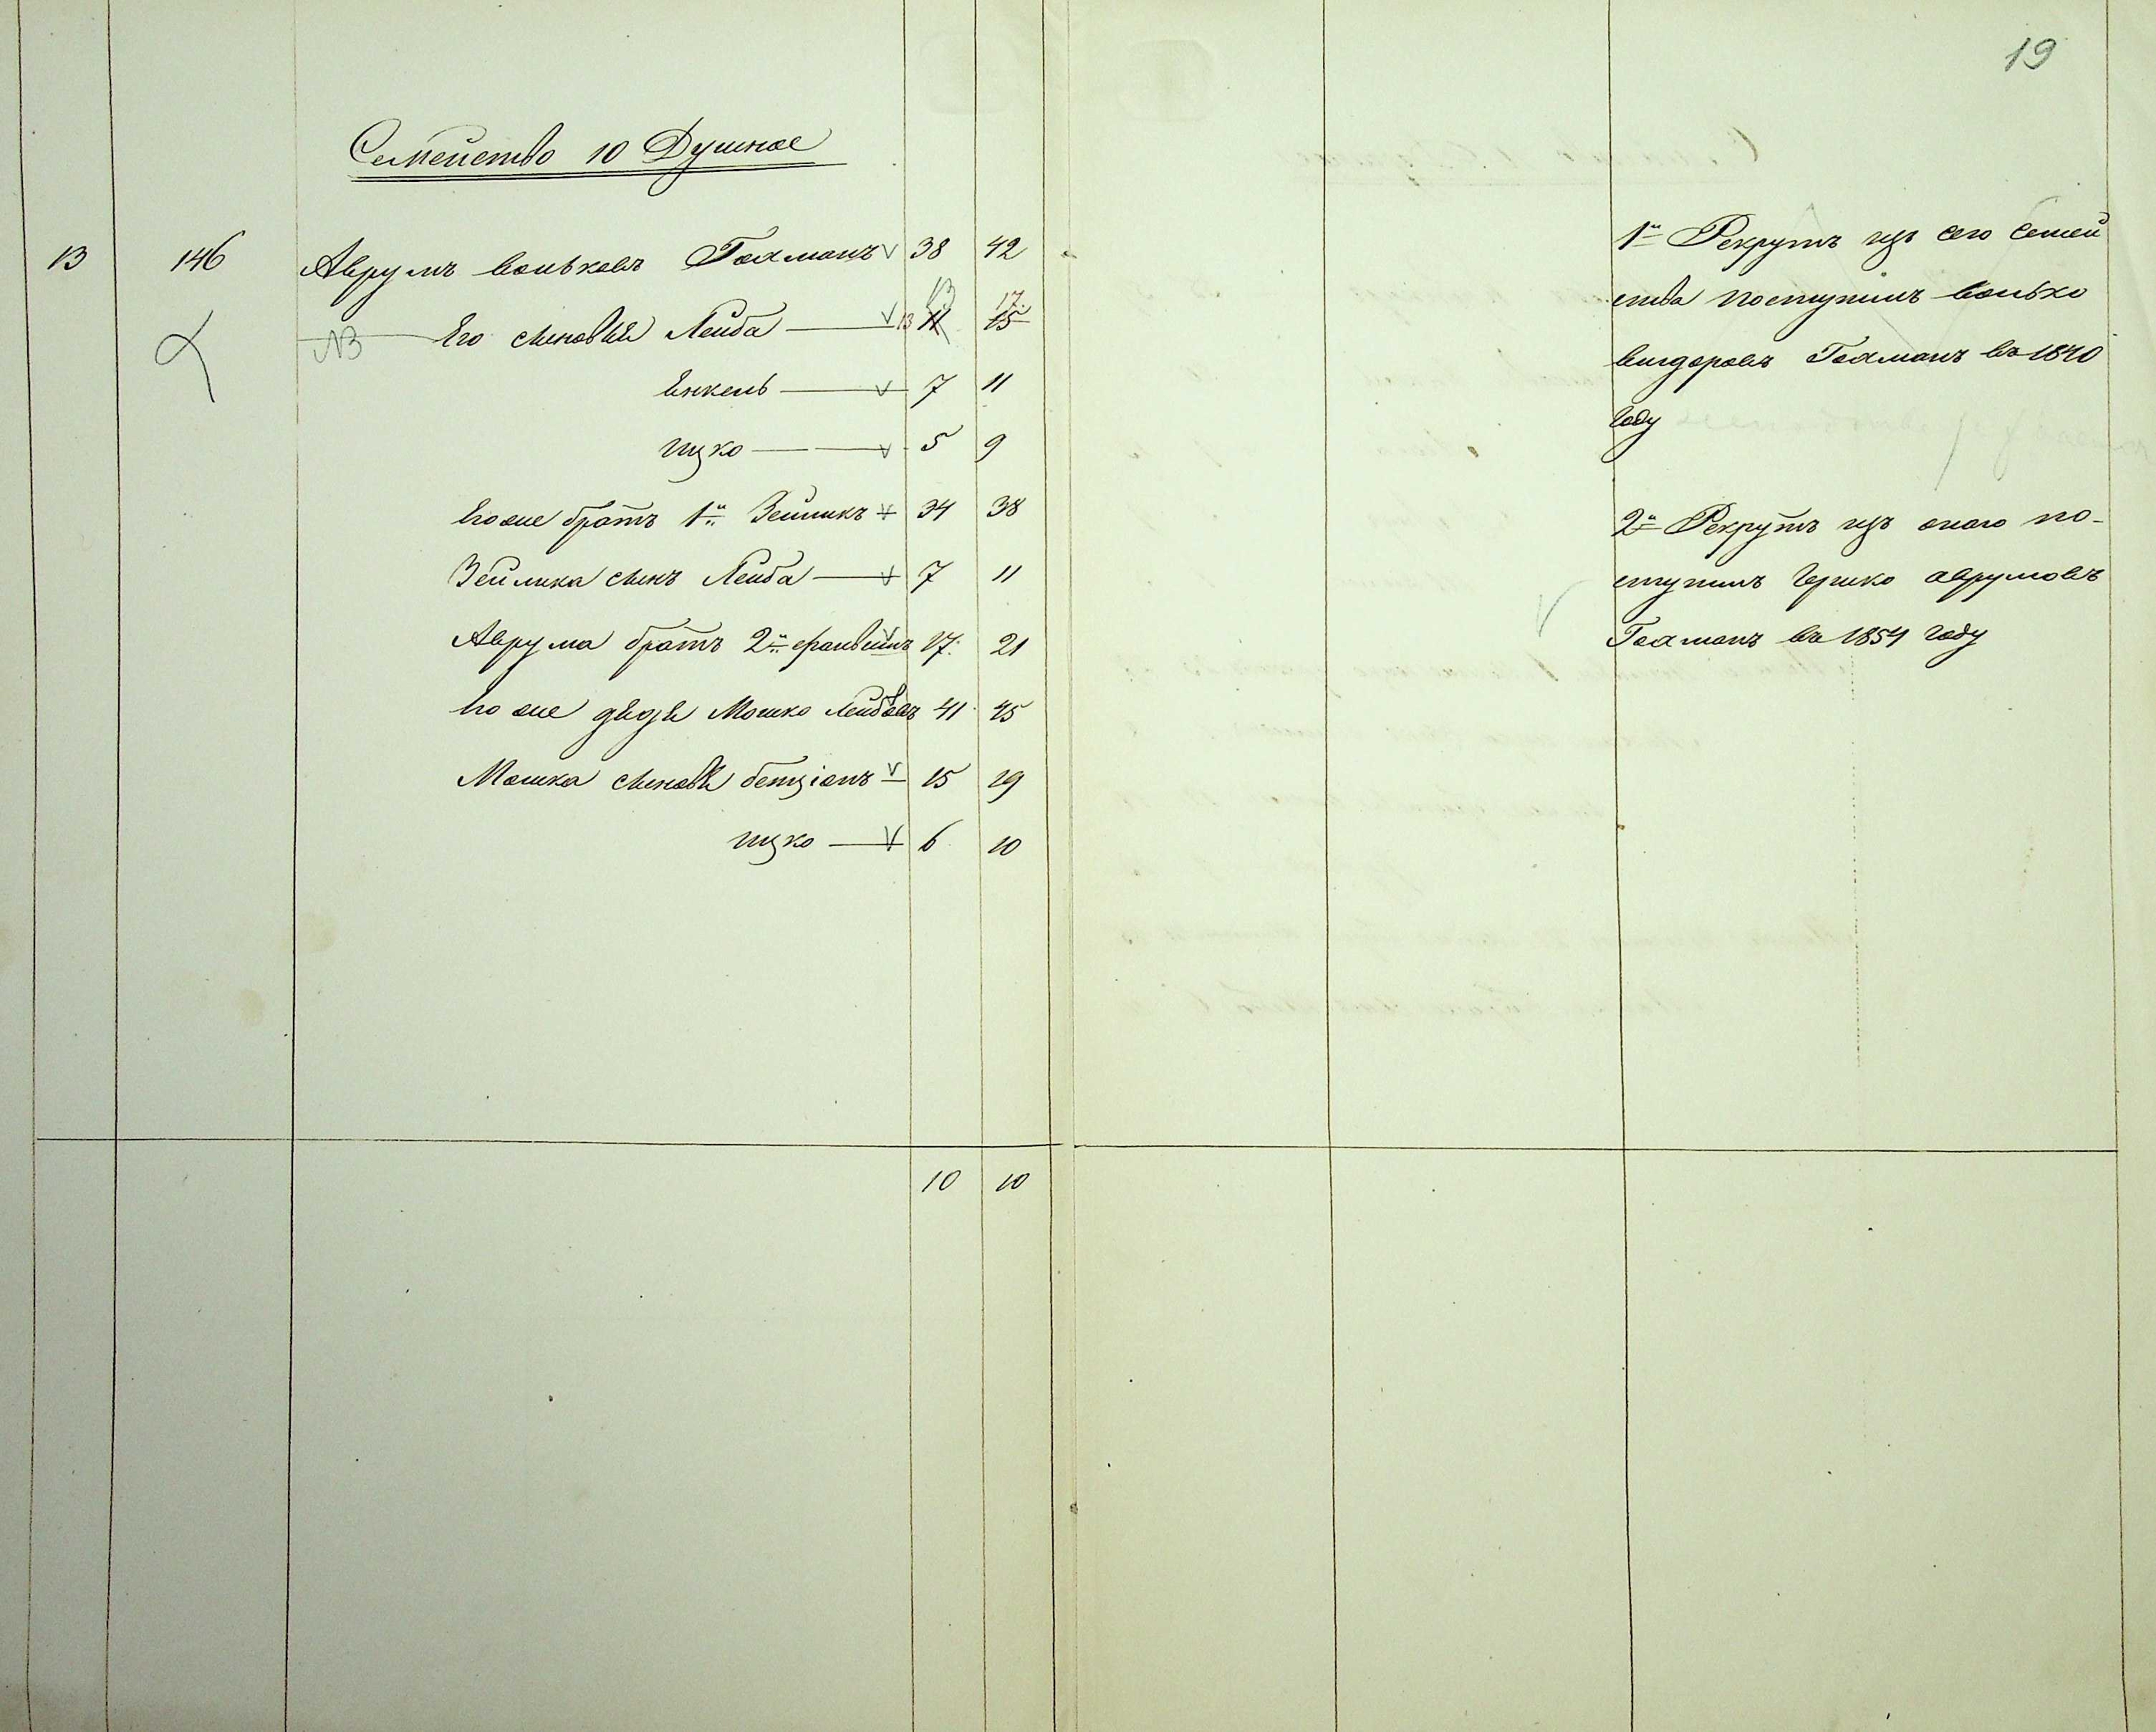 19
Семейство 10 Душное
13 146 Аврумъ Вольковъ Гохманъ 38 42
13 17
NB Его сыновья Лейба 13 11 15
Енкель 7 11
Ицко 5 9
Его же братъ 1й Зейликъ 34 38
Зейлика сынъ Лейба 7 11
Аврума братъ 2й 17 21
Его же дядя Мошко Лейбовъ 41 45
Мошка сыновья Бенціонъ 15 19
Ицко 6 10
10 10
1й Рекрутъ изъ сего семей
ства поступилъВолько
Вигдоровъ Гохманъ въ 1840
году
2й Рекрутъ изъ оного по-
ступилъ Гершко Аврумовъ
Гохманъ въ 1854 году